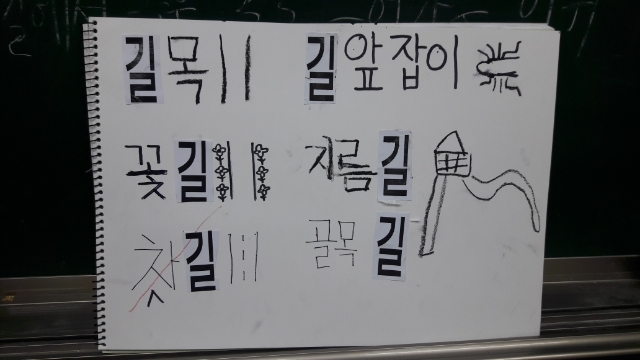 길목
길앞잡이
꽃길
지름길
찻길
골목길